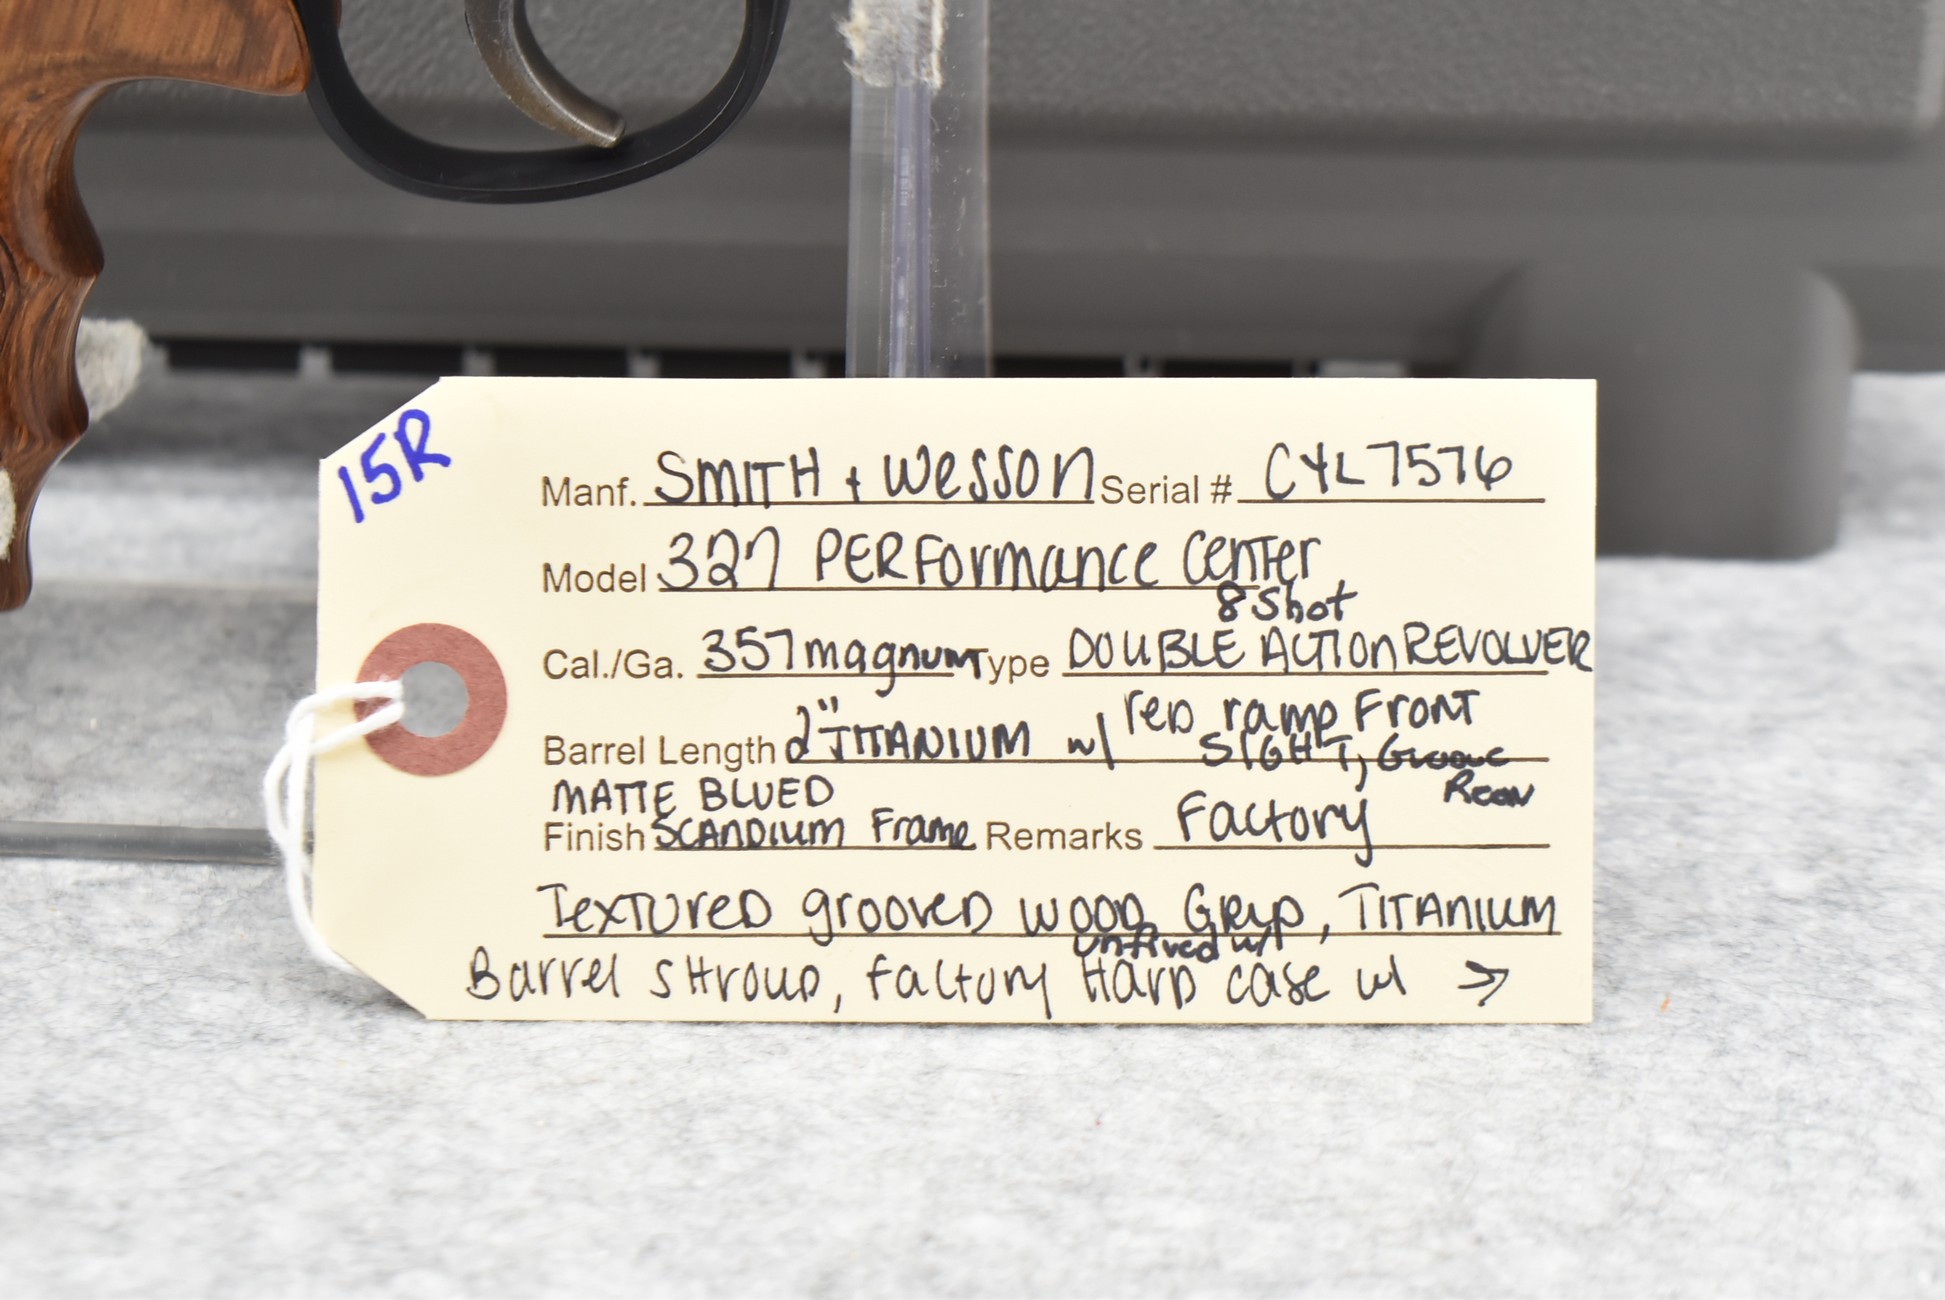 15R
Manf. SMITH + Wesson Serial # CYL7576
Model 327 PERFormance Center
8 Shot
Cal./Ga. 357 magnum Type DOUBLE ACTION REVOLVER
Barrel Length 2" TITANIUM w/ reD ramp Front
SIGHT, Groove
Rear
MATTE BLUED
Finish SCANDIUM Frame Remarks Factory
TexTUreD grooveD wooD Grip, TITANIUM
unfired w/
Barrel SHrouD, factory HarD case w/ →